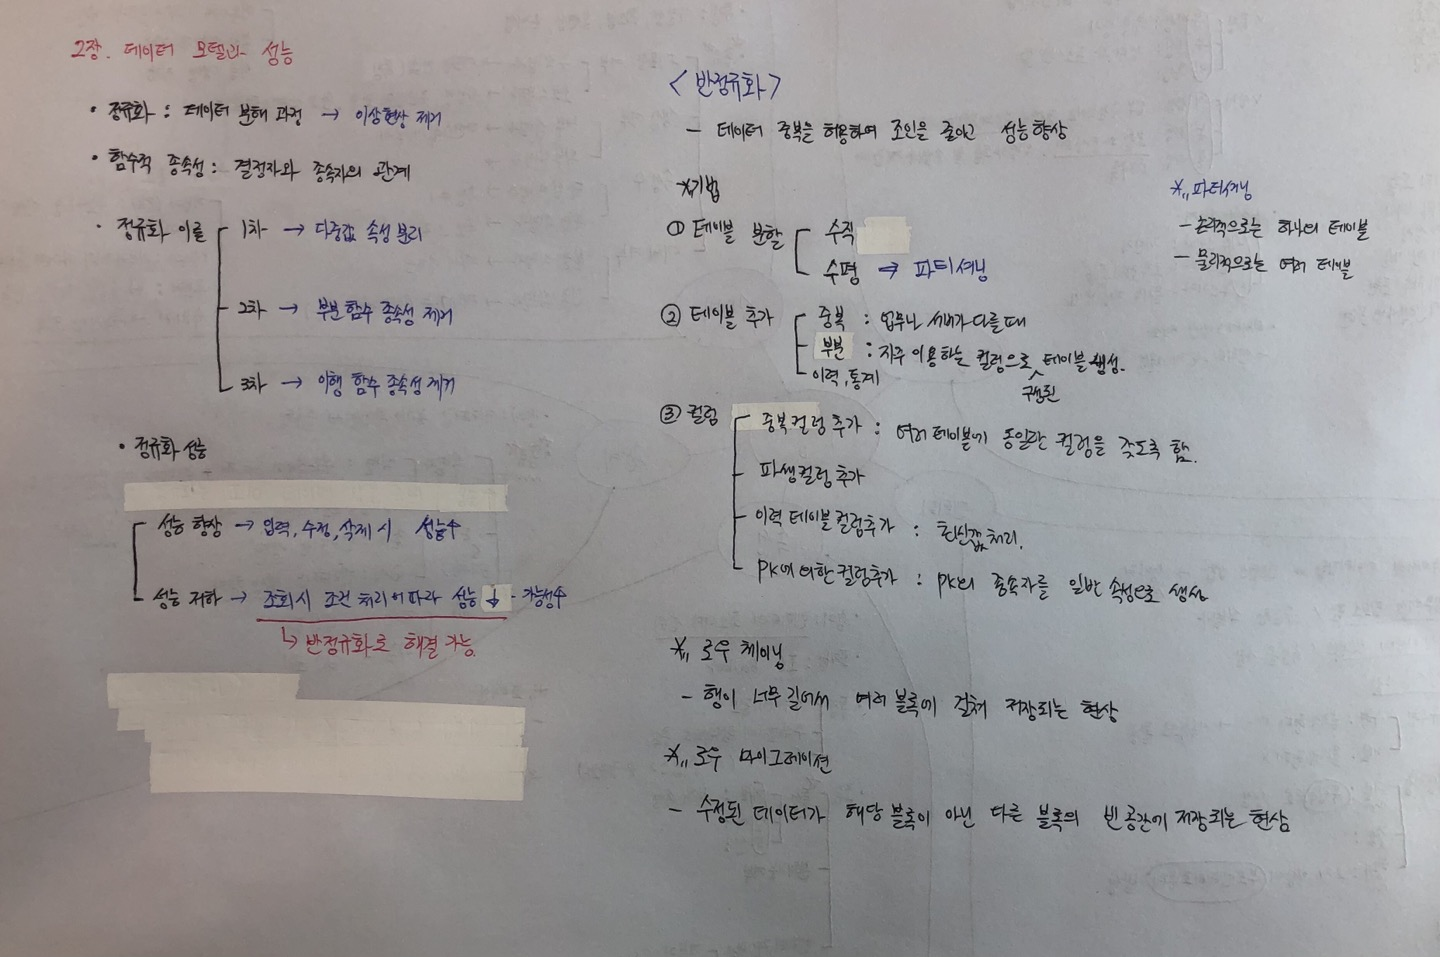 2장. 데이터 모델과 성능
• 정규화 : 데이터 분해 과정 → 이상현상 제거
• 함수적 종속성 : 결정자와 종속자의 관계
• 정규화 이론
1차 → 다중값 속성 분리
2차 → 부분 함수 종속성 제거
3차 → 이행 함수 종속성 제거
• 정규화 성능
성능 향상 → 입력, 수정, 삭제 시 성능↑
성능 저하 → 조회시 조건 처리에 따라 성능 ↓ 가능성↑
↳ 반정규화로 해결 가능.
< 반정규화 >
- 데이터 중복을 허용하여 조인을 줄이고 성능향상
※기법
① 테이블 분할
수직
수평 ⇒ 파티셔닝
② 테이블 추가
중복 : 업무나 서버가 다를 때
부분 : 자주 이용하는 컬럼으로 테이블 생성.
구성된
이력, 통계
③ 컬럼
중복컬럼 추가 : 여러 테이블에 동일한 컬럼을 갖도록 함.
파생컬럼 추가
이력 테이블 컬럼추가 : 최신값 처리.
PK에 의한 컬럼추가 : PK의 종속자를 일반 속성으로 생성
※ 로우 체이닝
- 행이 너무 길어서 여러 블록에 걸쳐 저장되는 현상
※ 로우 마이그레이션
- 수정된 데이터가 해당 블록이 아닌 다른 블록의 빈 공간에 저장되는 현상
※ 파티셔닝
- 논리적으로는 하나의 테이블
- 물리적으로는 여러 테이블